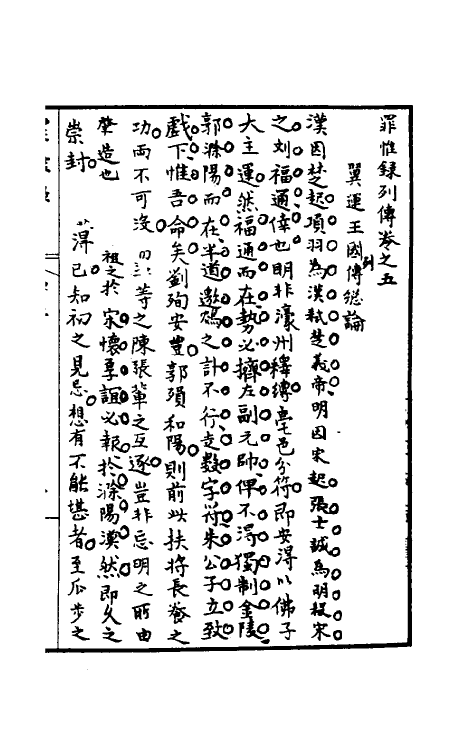 罪惟錄列傳卷之五
翼運王國列傳總論
漢因楚起項羽為漢弒楚義帝明因宋起張士誠為明捉宋
之刘福通倖也明非濠州釋縛亳邑分符即安得以佛子
大主運然福通而在勢必擠左副元帥俾不淂獨制金陵
郭滁陽而在半道邀鴆之計不行走数字符朱公子立致
戲下惟吾命矣劉殉安豐郭殞和陽則前此扶將長養之
功而不可没等之陳張軰之互逐豈非忘明之所由
肇造也祖之於宋懷尊誼必報於滁陽漠然即久之
崇封已知初之見忌想有不能堪者至瓜步之